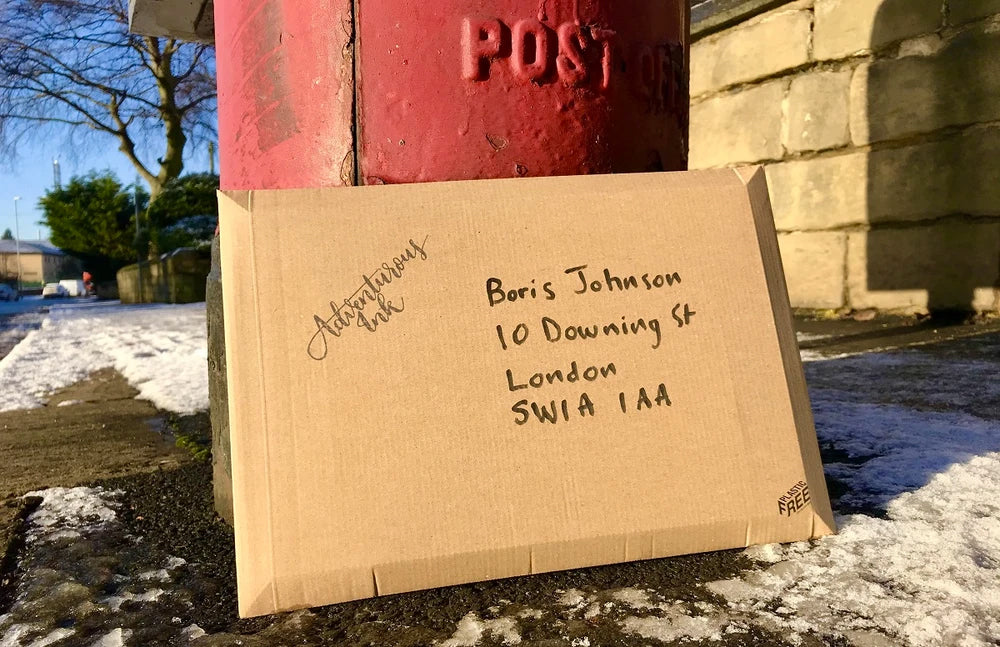 POST OF
Adventurous
Ink
Boris Johnson
10 Downing St
London
SW1A 1AA
PLASTIC
FREE